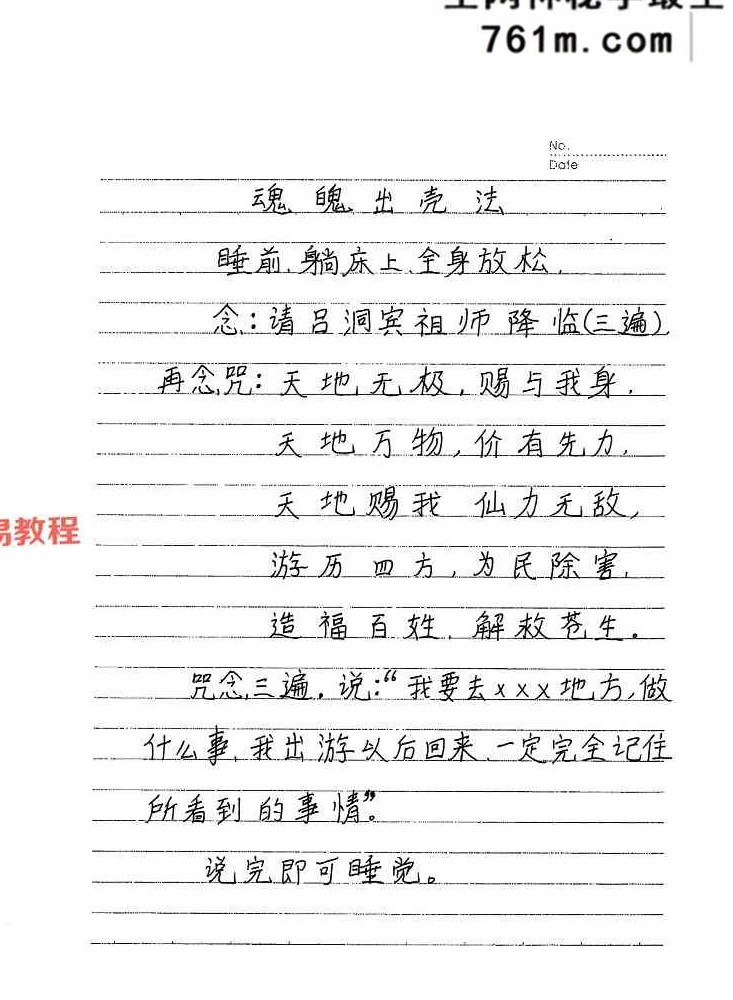 761m.com
No.
Date
魂魄出壳法
睡前、躺床上、全身放松、
念：请吕洞宾祖师降临(三遍)
再念咒：天地无极，赐与我身、
天地万物，价有先力、
天地赐我 仙力无敌，
游历四方，为民除害、
易教程
造福百姓、解救苍生。
咒念三遍。说：“我要去xxx地方，做
什么事，我出游以后回来、一定完全记住
所看到的事情”。
说完即可睡觉。